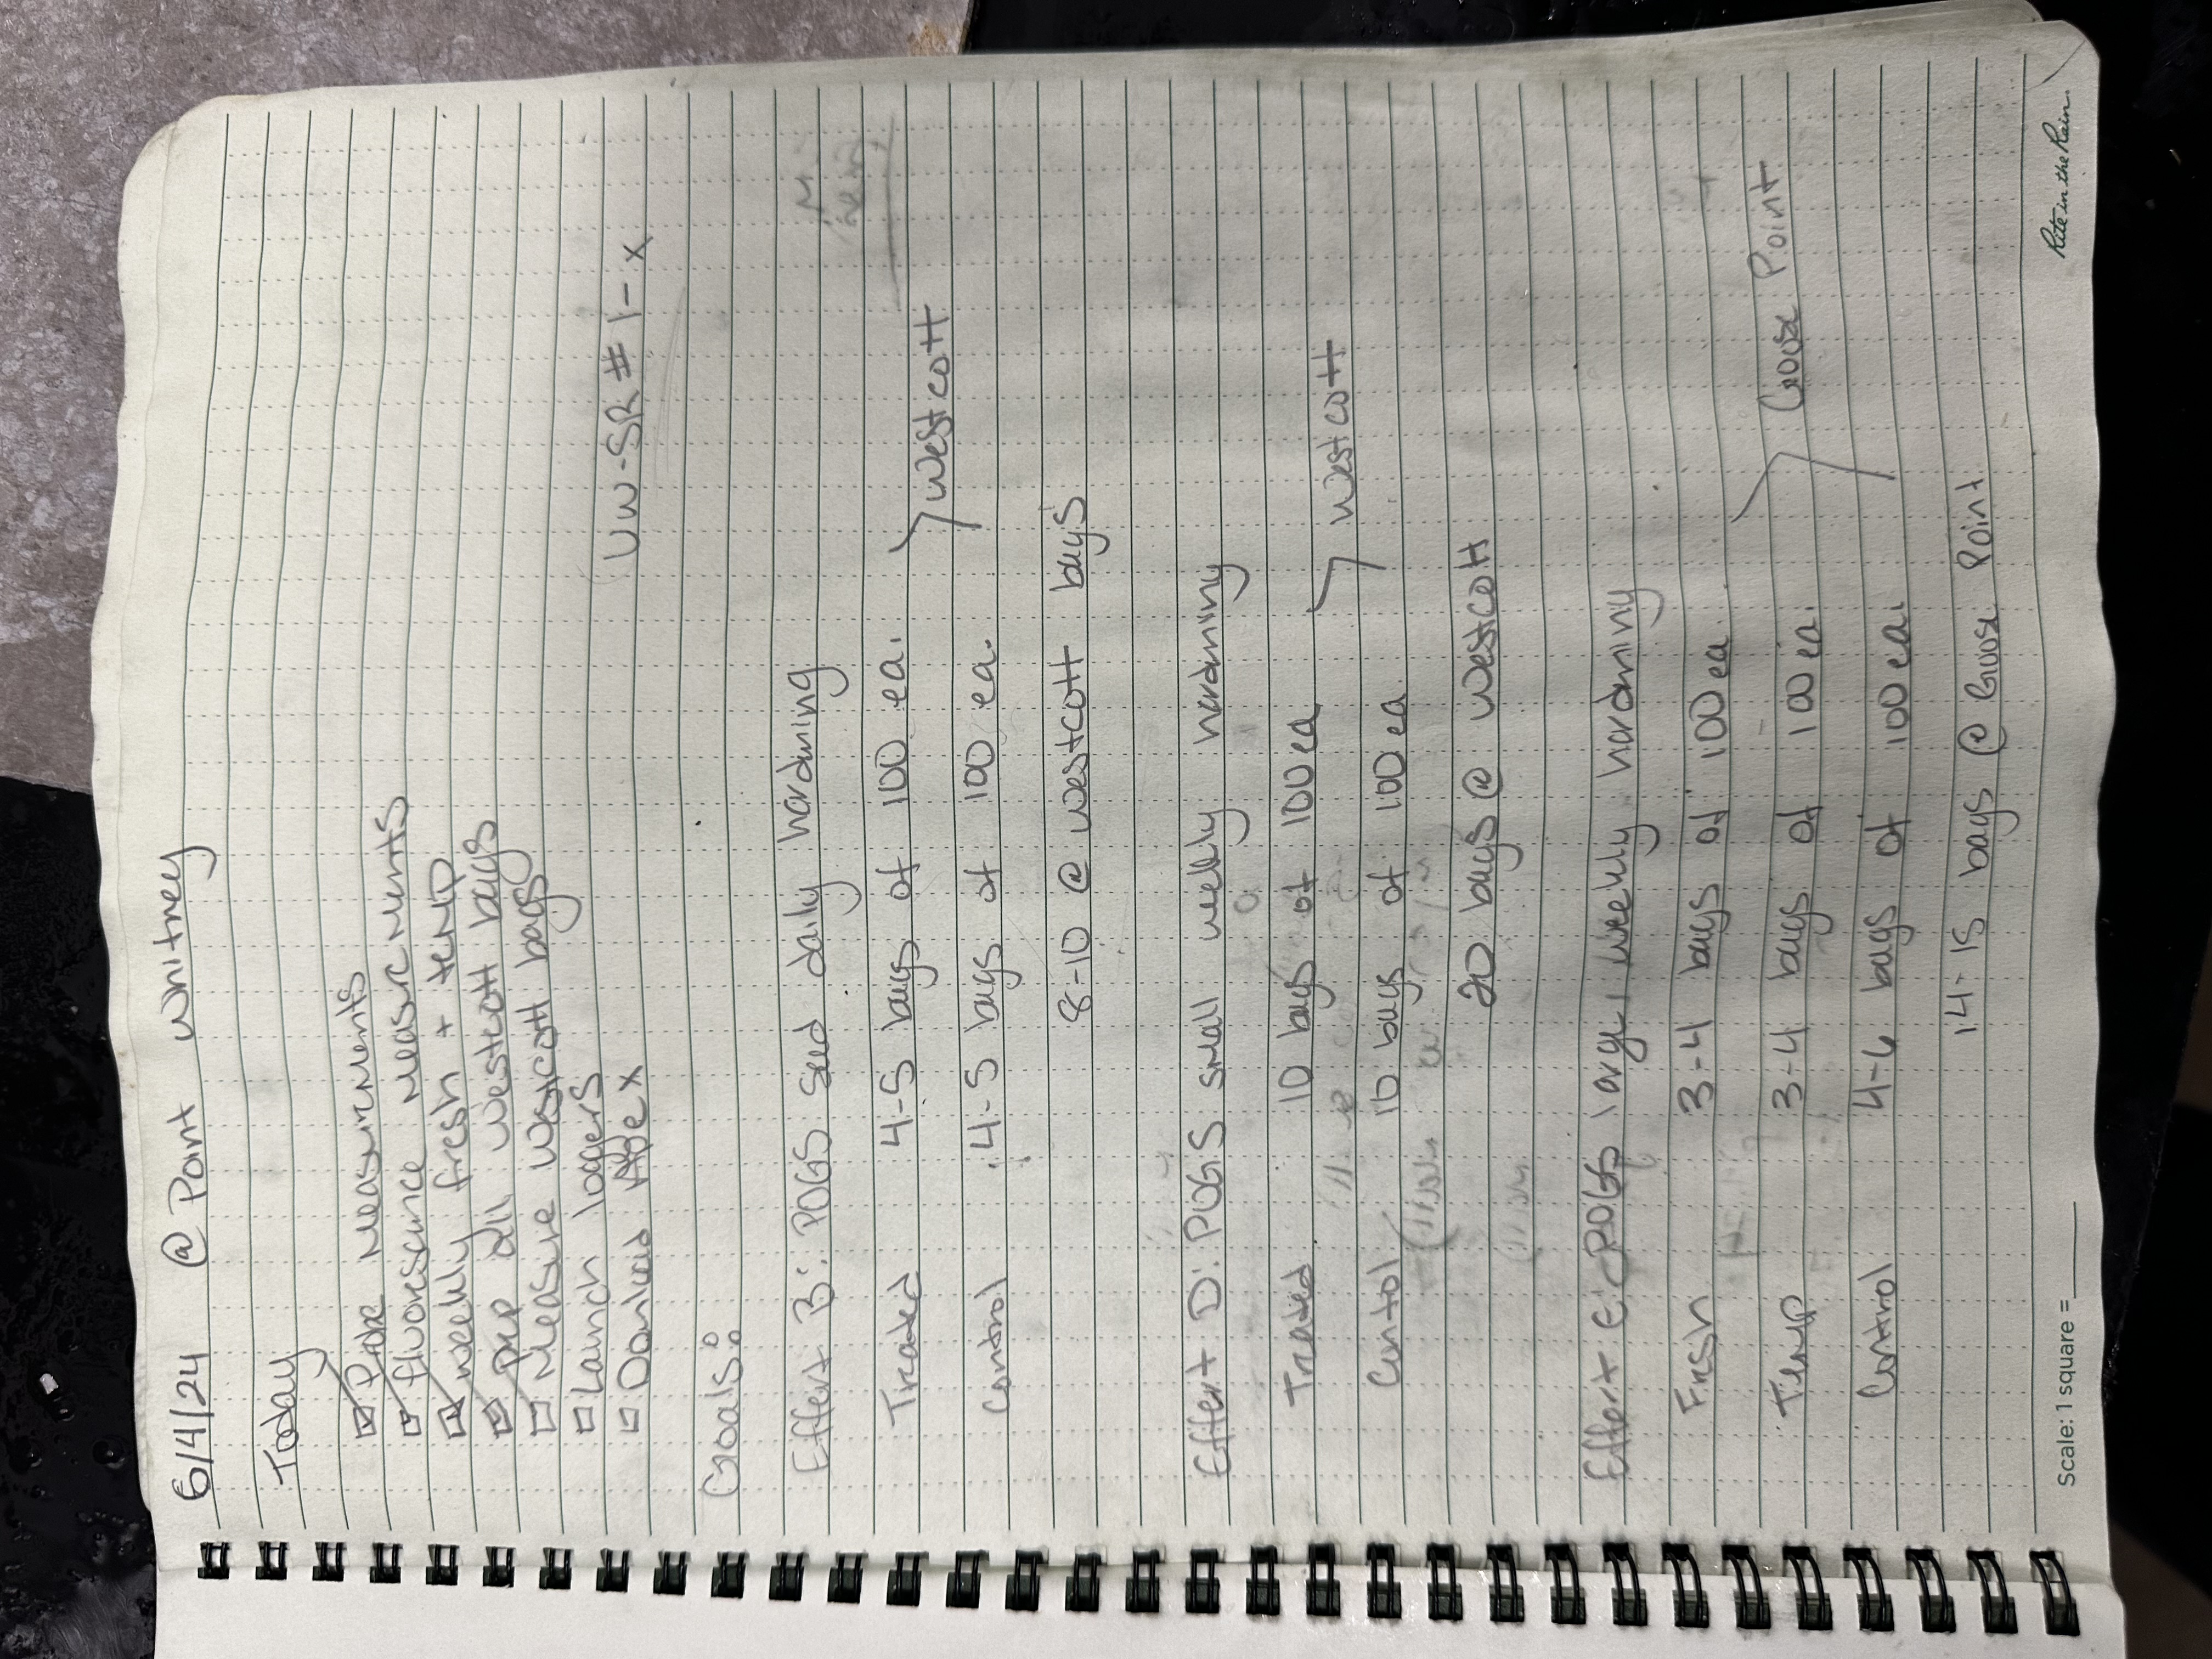 6/4/24 @ Point Whitney
Today
Probe Measurments
fluorescence Measurments
weekly fresh + temp
prep all Westcott bags
Measure Westcott bags
Launch loggers
Download Apex
UW-SR # 1- x
Goals:
Effort B: POGS seed daily hardening
Treated 4-5 bags of 100 ea.
Westcott
Control 4-5 bags of 100 ea.
8-10 @ westcott bags
Effort D: POGS small weekly hardening
Treated 10 bags of 100 ea
Westcott
Contol 10 bags of 100 ea
20 bags @ Westcott
Effort E: POGS large, weekly hardening
Fresh 3-4 bags of 100 ea
Temp 3-4 bags of 100 ea.
Goose Point
Control 4-6 bags of 100 ea.
14-15 bags @ Goose Point
Scale: 1 square =
Rite in the Rain.